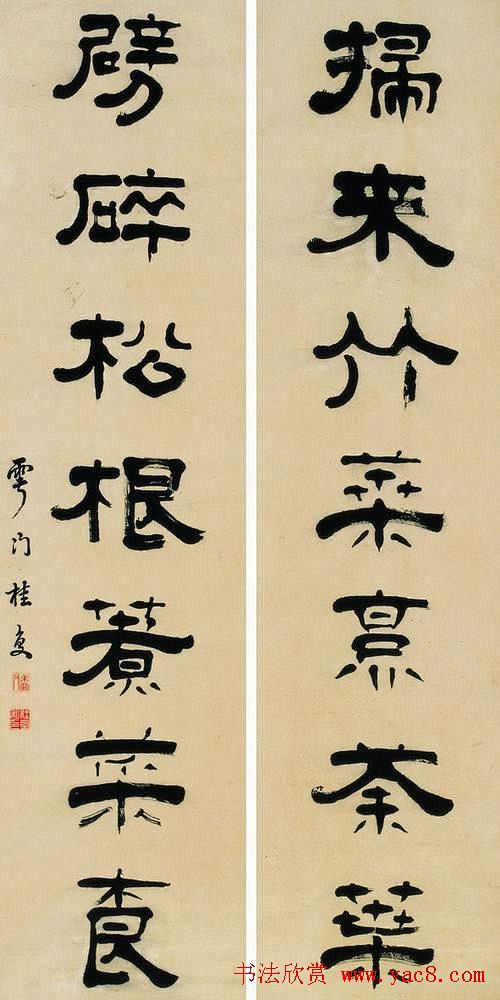 掃来竹葉烹茶葉
劈碎松根煮菜根
雩门桂复
书法欣赏 www.yac8.com